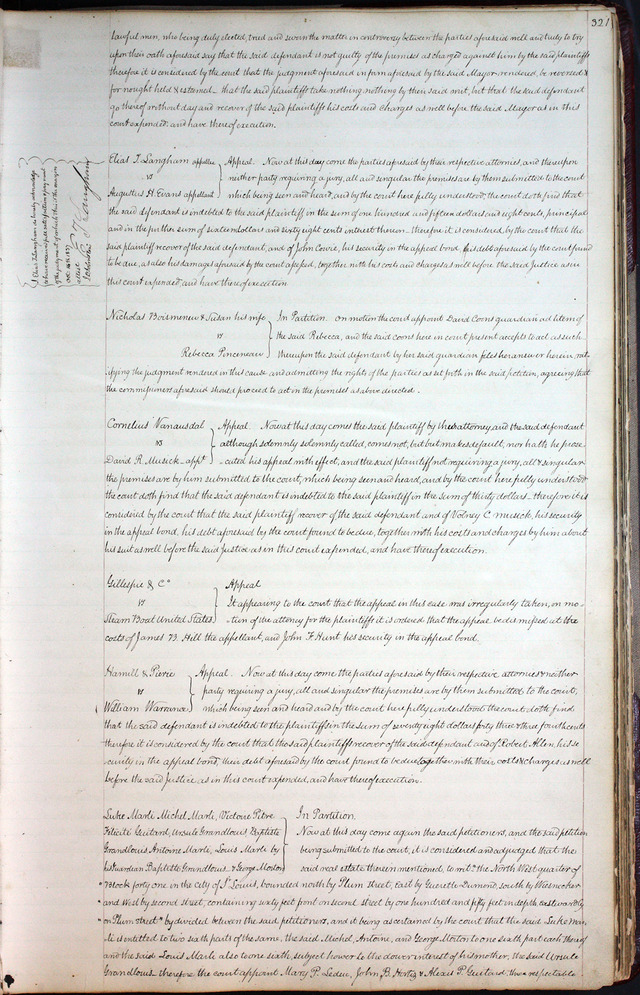 321
lawful men, who being duly elected, tried and sworn the matter in controversy between the parties aforesaid well and truly to try
upon their oath aforesaid say that the said defendant is not guilty of the premises as charged against him by the said plaintiffs
therefore it is considered by the court that the judgment aforesaid in form aforesaid by the said Mayor rendered, be reversed &
for nought held & esteemed that the said plaintiffs take nothing nothing by their said suit, but that the said defendant
go thereof without day and recover of the said plaintiffs his costs and charges as well before the said Mayor as in this
court expended: and have thereof execution.
Elias T. Langham appellee
vs
Augustus H. Evans appellant
Appeal. Now at this day come the parties aforesaid by their respective attornies, and thereupon
neither party requiring a jury, all and singular the premises are by them submitted to the court
which being seen and heard, and by the court here fully understood, the court doth find that
the said defendant is indebted to the said plaintiff in the sum of one hundred and fifteen dollars and eight cents, principal
and in the further sum of sixteen dollars and sixty eight cents interest thereon. therefore it is considered, by the court that the
said plaintiff recover of the said defendant, and of John Cowie, his security in the appeal bond, his debt aforesaid by the court found
to be due, as also his damages aforesaid by the court assessed, together with his costs and charges as well before the said Justice as in
this court expended, and have thereof execution
Nicholas Boismenue & Susan his wife
vs
Rebecca Ponceneau
In Partition. On motion the court appoint David Coons guardian ad litem of
the said Rebecca, and the said coons here in court present accepts to act as such
thereupon the said defendant by her said guardian files her answer herein, rat-
ifying the judgment rendered in this cause and admitting the rights of the parties as set forth in the said petition, agreeing that
the commissioners aforesaid should proceed to act in the premises as above directed.
Cornelius Vanausdal
vs
David R. Musick appt
Appeal. Now at this day comes the said plaintiff by attorney, and the said defendant
although solemnly solemnly called, comes not, but but makes default, nor hath he prose
cuted his appeal with effect, and the said plaintiff not requiring a jury, all & singular
the premises are by him submitted to the court, which being seen and heard, and by the court here fully understood
the court doth find that the said defendant is indebted to the said plaintiff in the sum of thirty dollars. therefore it is
considered by the court that the said plaintiff recover of the said defendant and of Volney C. Musick, his security
in the appeal bond, his debt aforesaid by the court found to be due, together with his costs and charges by him about
his suit as well before the said Justice as in this court expended, and have thereof execution.
Gillespie & Co
vs
Steam Boat United States
Appeal
It appearing to the court that the appeal in this case was irregularly taken, on mo-
tion of the attorney for the plaintiffs it is ordered that the appeal be dismissed at the
costs of James B. Hill the appellant, and John F. Hunt his security in the appeal bond.
Hamill & Pierie
vs
William Warrance
Appeal. Now at this day come the parties aforesaid by their respective attornies & neither
party requiring a jury, all and singular the premises are by them submitted to the court,
which being seen and heard and by the court here fully understood the court doth find
that the said defendant is indebted to the plaintiffs in the sum of seventy eight dollars forty three & three fourth cents
therefore it is considered by the court that the said plaintiffs recover of the said defendant and of Robert Allen, his se
curity in the appeal bond, their debt aforesaid by the court found to be due together with their costs & charges as well
before the said Justice as in this court expended, and have thereof execution.
Luke Marli Michel Marli, Victoire Petre
Felicité Guitard, Ursule Grandlouis, Baptiste
Grandlouis Antoine Marli, Louis Marli by
his Guardian Baptiste Grandlouis & George Morton
In Partition.
Now at this day come again the said petitioners, and the said petition
being submitted to the court, it is considered and adjudged that the
said real estate therein mentioned, to wit: the North West quarter of
Block forty one in the city of St Louis, bounded north by Plum street, East by Guerette Dumond, south by
and west by second street, containing sixty feet front on second street by one hundred and fifty feet in depth eastwardly
on Plum street be divided between the said petitioners, and it being ascertained by the court that the said Luke Mar-
li is entitled to two sixth parts of the same, the said Michel, Antoine, and George Morton to one sixth part each thereof
and the said Louis Marli also to one sixth, subject however to the dower interest of his mother, the said Ursule
Grandlouis therefore the court appoint Mary P. Leduc, John B. Hortiz & Alexis P. Guitard, three respectable